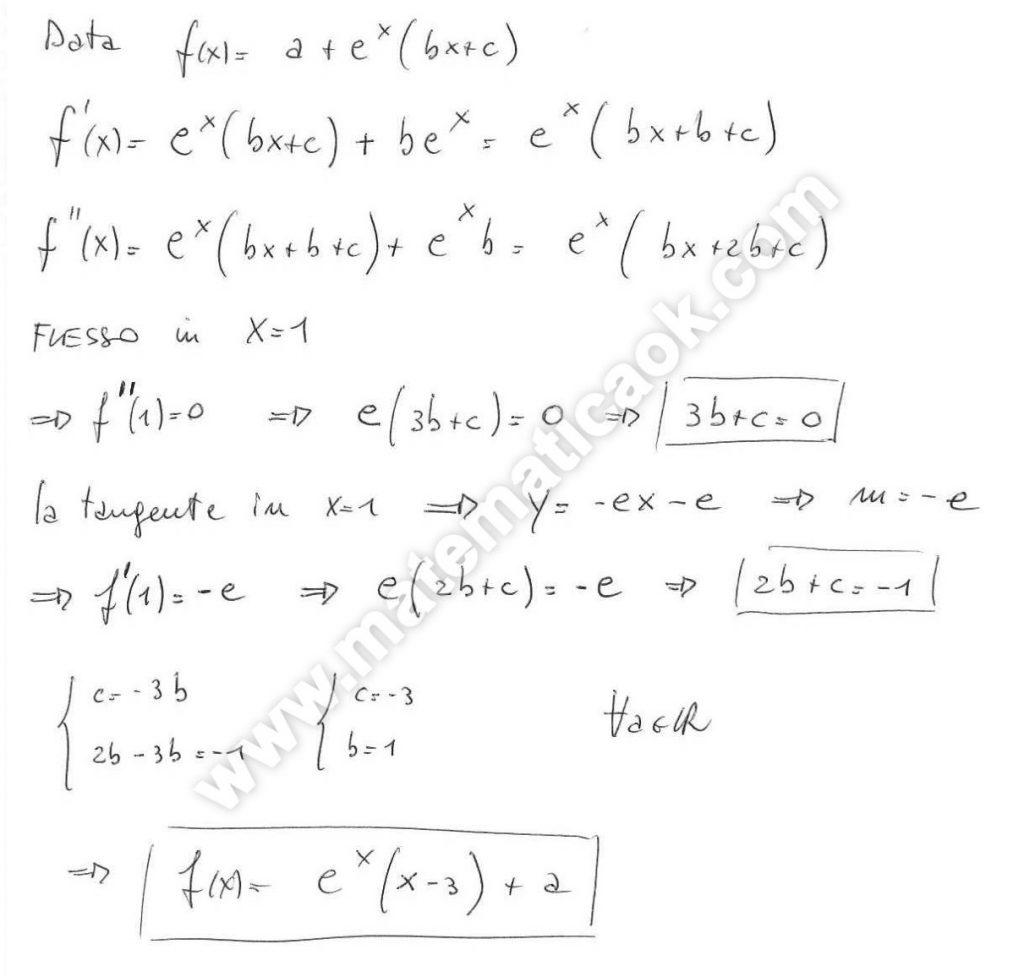 Data f(x)= a + eˣ(bx+c)
f'(x)= eˣ(bx+c) + beˣ = eˣ(bx+b+c)
f"(x)= eˣ(bx+b+c)+ eˣb = eˣ(bx+2b+c)
FLESSO in X=1
⇒ f"(1)=0 ⇒ e(3b+c)=0 ⇒ 3b+c=0
la tangente in x=1 ⇒ y= -ex-e ⇒ m=-e
⇒ f'(1)=-e ⇒ e(2b+c)=-e ⇒ 2b+c=-1
{ c=-3b { c=-3 ∀a∈ℝ
2b-3b=-1 b=1
⇒ f(x)= eˣ(x-3)+a
www.matematicaok.com